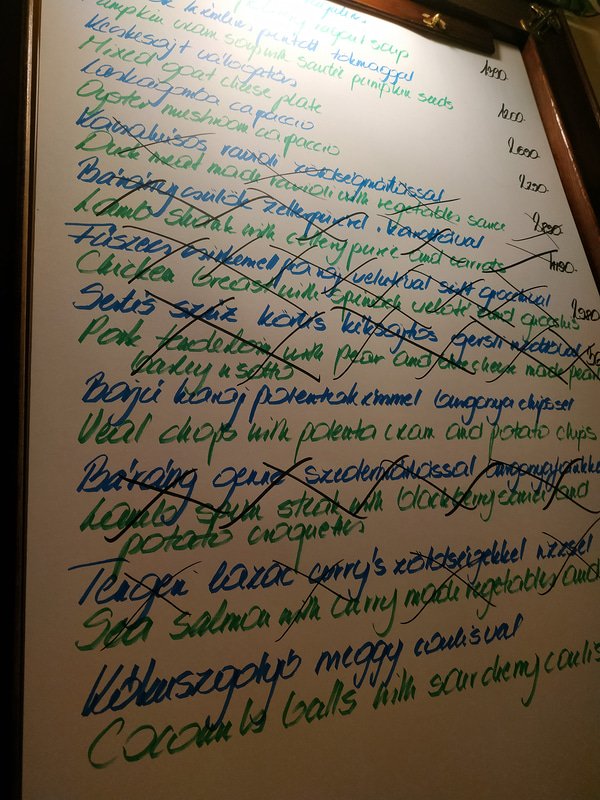 soup
Pumpkin cream soup with sauteé pumpkin seeds
1390.
Kecskesajt válogatás
Mixed goat cheese plate
1200.
Laskagomba capaccio
Oyster mushroom carpaccio
2690.
Kacsahúsos ravioli zöldségmártással
Duck meat made ravioli with vegetables sauce
2290.
Bárány csülök zellerpürével, karottával
Lamb shank with cellery puree and carrots
2890.
Fűszeres csirkemell
Chicken breast with spinach velute and gnochis
Sertés szűz körtés kéksajtos gersli rizottóval
Pork tenderloin with pear and blue cheese made pearl
barley risotto
Borjú karaj polentakrémmel burgonya chipssel
Veal chops with polenta cream and potato chips
Bárány gerinc szedermártással
Lamb spim steak with blackberry sauce and
potato croquettes
Tengeri lazac curry's zöldségekkel rizzsel
Sea salmon with curry made vegetables and
Kókuszgolyó meggy coulisval
Coconuts balls with sourcherry coulis